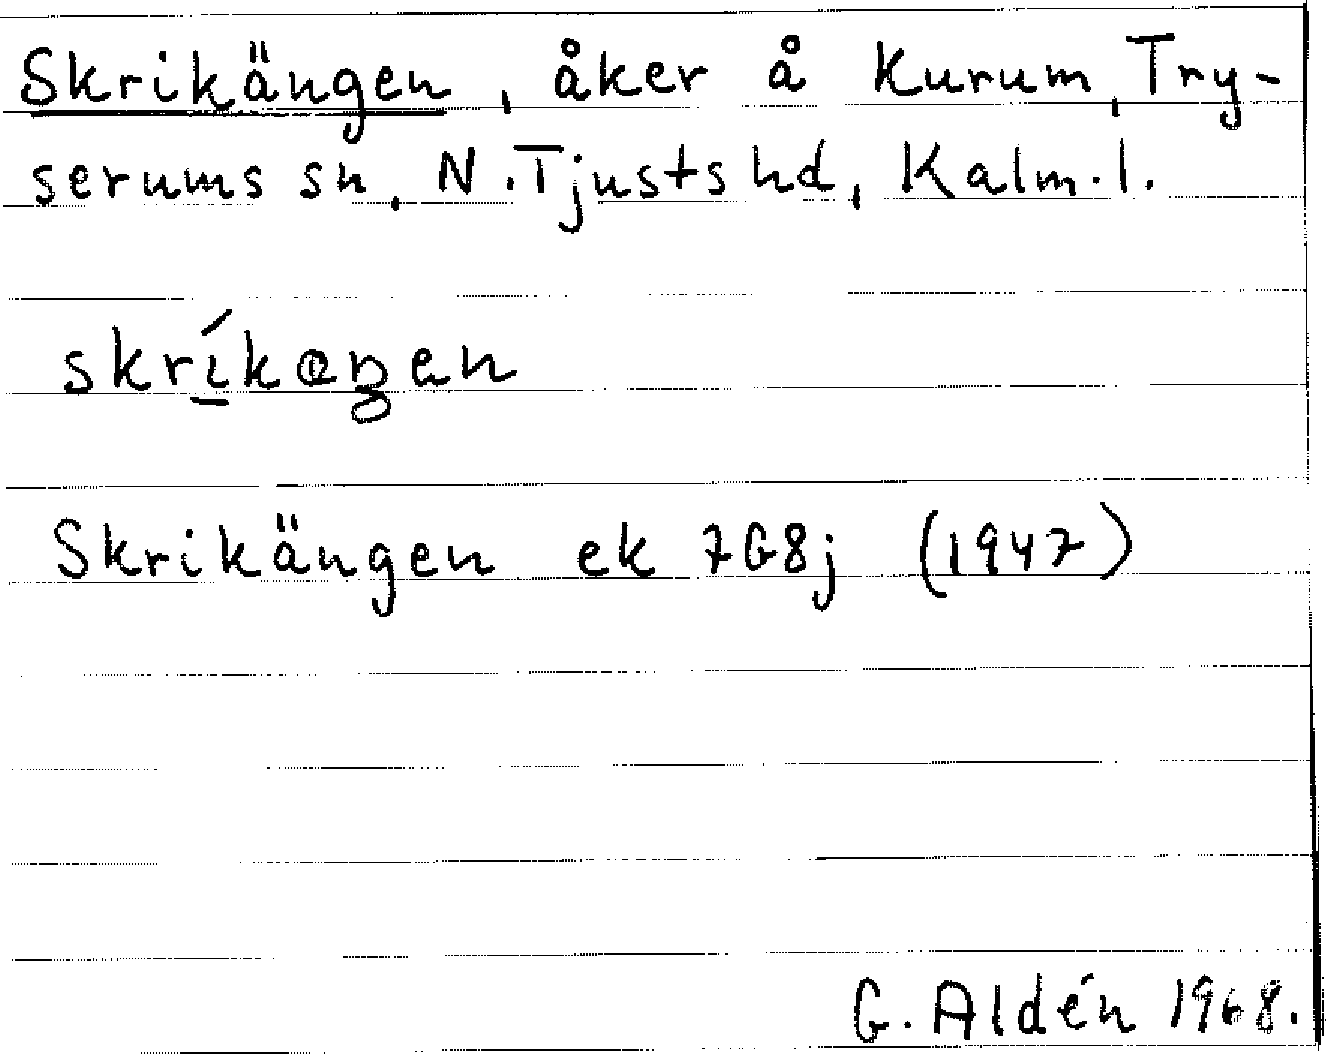 Skrikängen, åker å Kurum, Try-
serums sn, N. Tjusts hd, Kalm. l.
Skrikängen ek 7G8j (1947)
G. Aldén 1968.